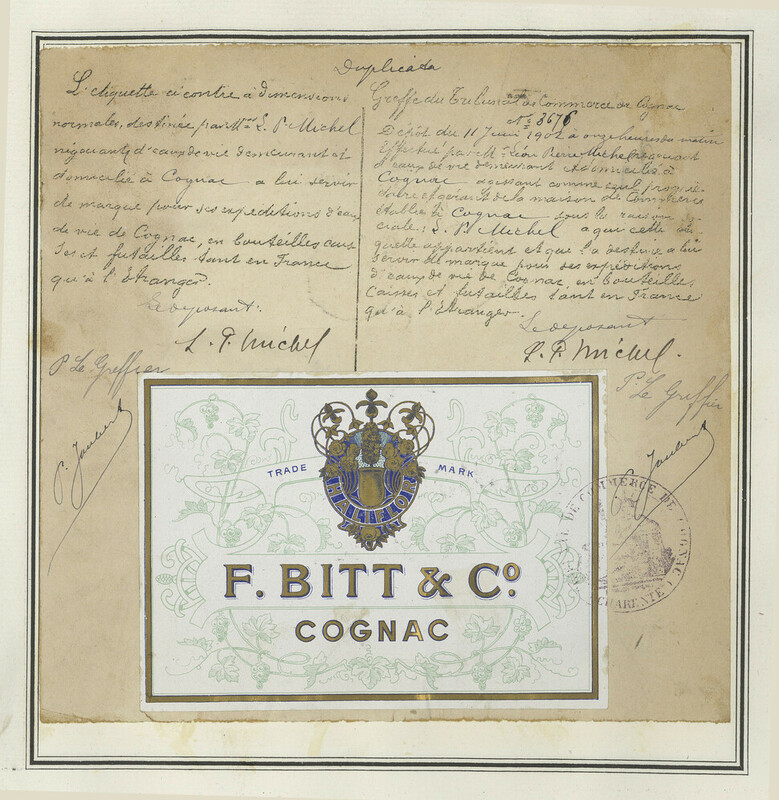 Duplicata
L'etiquette ci contre à dimensions
normales, destinée par Mr L. P. Michel
négociant d'eaux de vie demeurant et
domicilié à Cognac a lui servir
de marque pour ses expéditions d'eaux
de vie de Cognac, en bouteilles cais
ses et futailles tant en France
qu'à l'Etranger.
Le deposant:
L. P. Michel
P. Le Greffier
P. Jaulard
Greffe du Tribunal de Commerce de Cognac
No 3676
Dépôt du 11 Juin 1902 à onze heures du matin
Effectué par Mr Léon Pierre Michel négociant
d'eaux de vie demeurant et domicilié à
Cognac agissant comme seul proprié-
taire et gérant de la maison de Commerce
établie à Cognac sous la raison so-
ciale: L. P. Michel a qui cette éti-
quette appartient et que l'a destinée a lui
servir de marque pour ses expéditions
d'eaux de vie de Cognac, en bouteilles
Caisses et futailles tant en France
qu'à l'Etranger.
Le deposant
L. P. Michel.
P. Le Greffier
Jaulard
TRADE MARK
HALIFLOR
F. BITT & Co.
COGNAC
DE COMMERCE DE COGNAC
CHARENTE